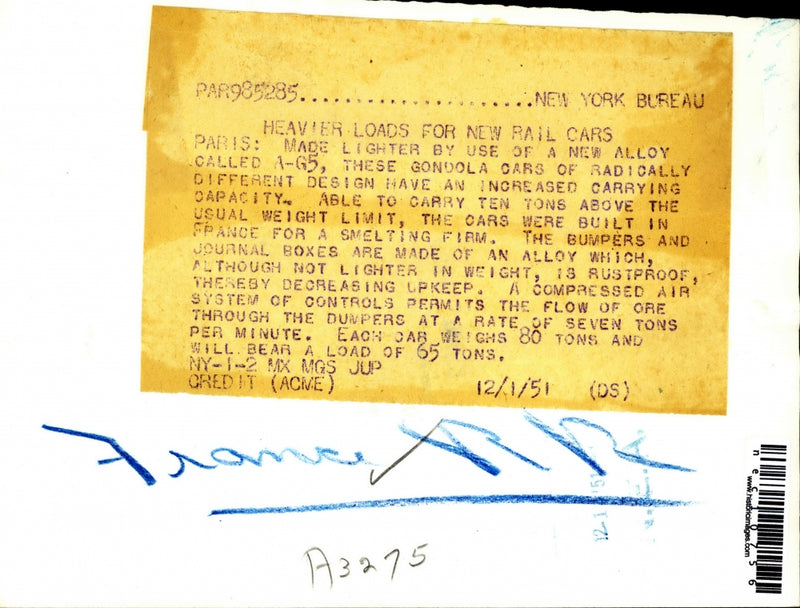 PAR985285......................NEW YORK BUREAU
HEAVIER LOADS FOR NEW RAIL CARS
PARIS: MADE LIGHTER BY USE OF A NEW ALLOY
CALLED A-G5, THESE GONDOLA CARS OF RADICALLY
DIFFERENT DESIGN HAVE AN INCREASED CARRYING
CAPACITY. ABLE TO CARRY TEN TONS ABOVE THE
USUAL WEIGHT LIMIT, THE CARS WERE BUILT IN
FRANCE FOR A SMELTING FIRM. THE BUMPERS AND
JOURNAL BOXES ARE MADE OF AN ALLOY WHICH,
ALTHOUGH NOT LIGHTER IN WEIGHT, IS RUSTPROOF,
THEREBY DECREASING UPKEEP. A COMPRESSED AIR
SYSTEM OF CONTROLS PERMITS THE FLOW OF ORE
THROUGH THE DUMPERS AT A RATE OF SEVEN TONS
PER MINUTE. EACH CAR WEIGHS 80 TONS AND
WILL BEAR A LOAD OF 65 TONS.
NY-1-2 MX MGS JUP
CREDIT (ACME) 12/1/51 (DS)
France RR
A3275
nec18756
www.historicimages.com